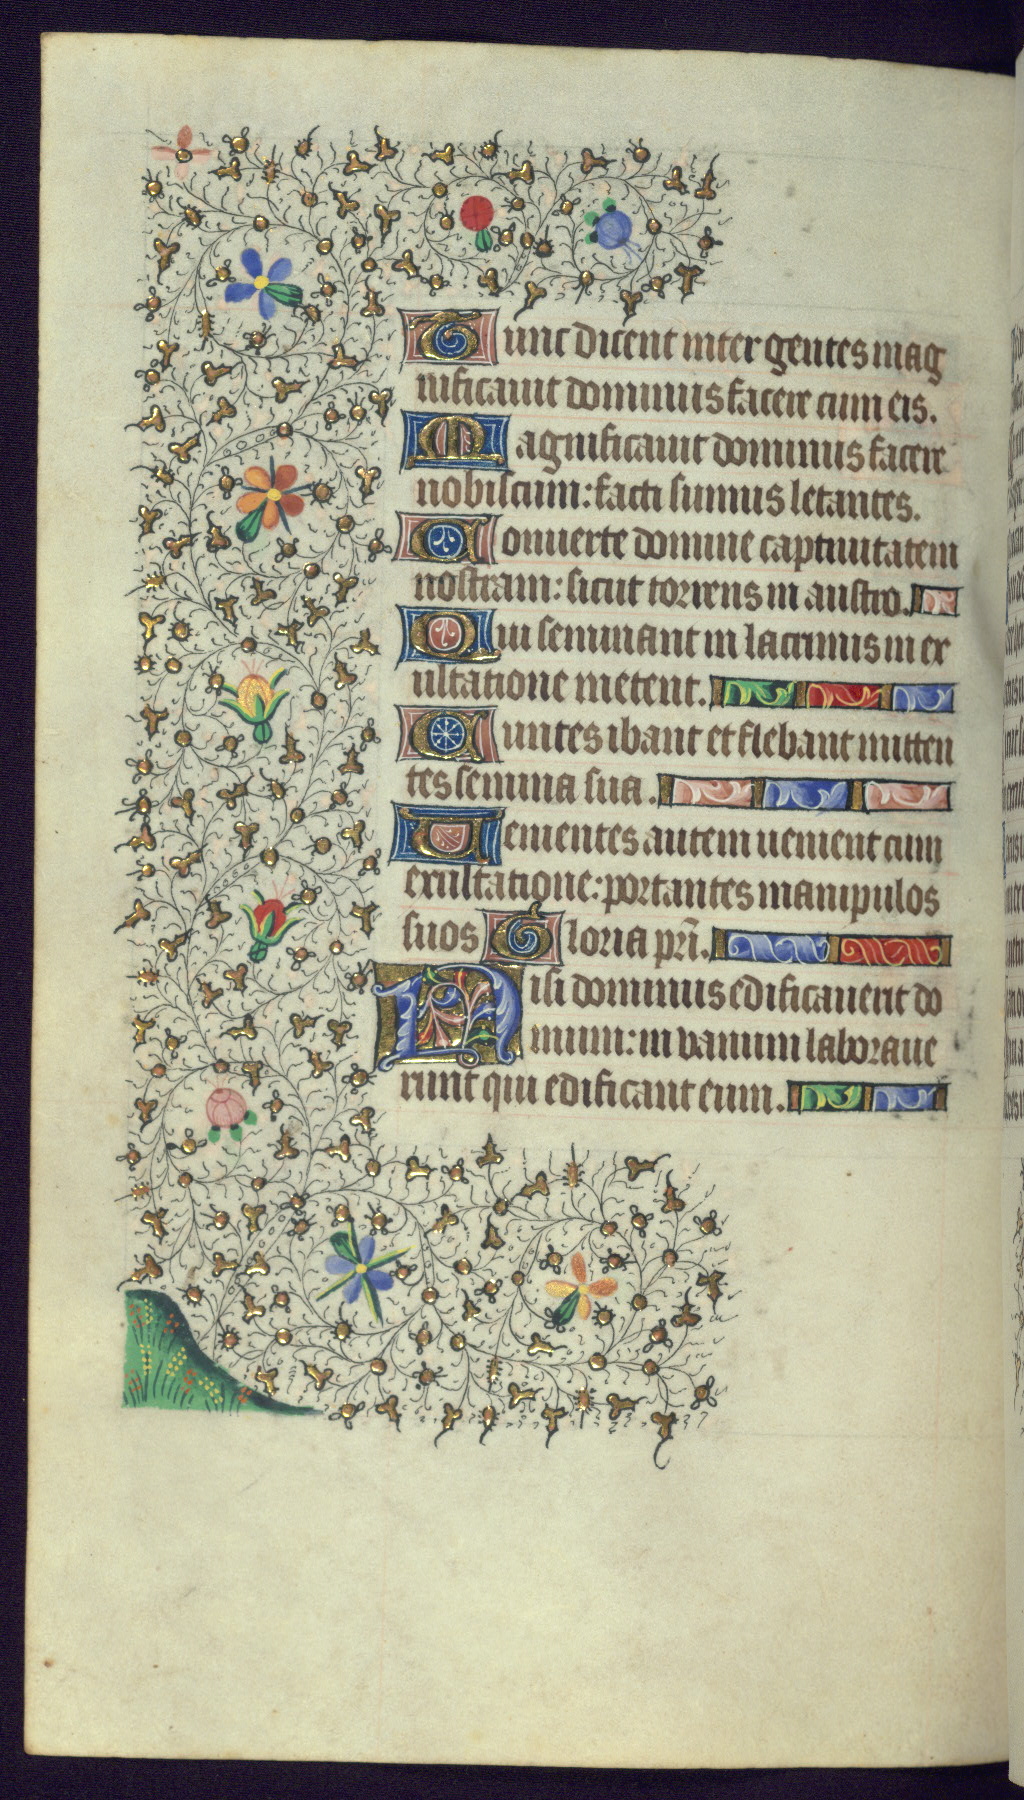 Tunc dicent inter gentes mag
nificauit dominus facere cum eis.
Magnificauit dominus facere
nobiscum: facti sumus letantes.
Conuerte domine captiuitatem
nostram: sicut torrens in austro.
Qui seminant in lacrimis in ex
ultatione metent.
Euntes ibant et flebant mitten
tes semina sua.
Uenientes autem uenient cum
exultatione: portantes manipulos
suos Gloria pr̄i.
Nisi dominus edificauerit do
mum: in vanum laboraue
runt qui edificant eum.